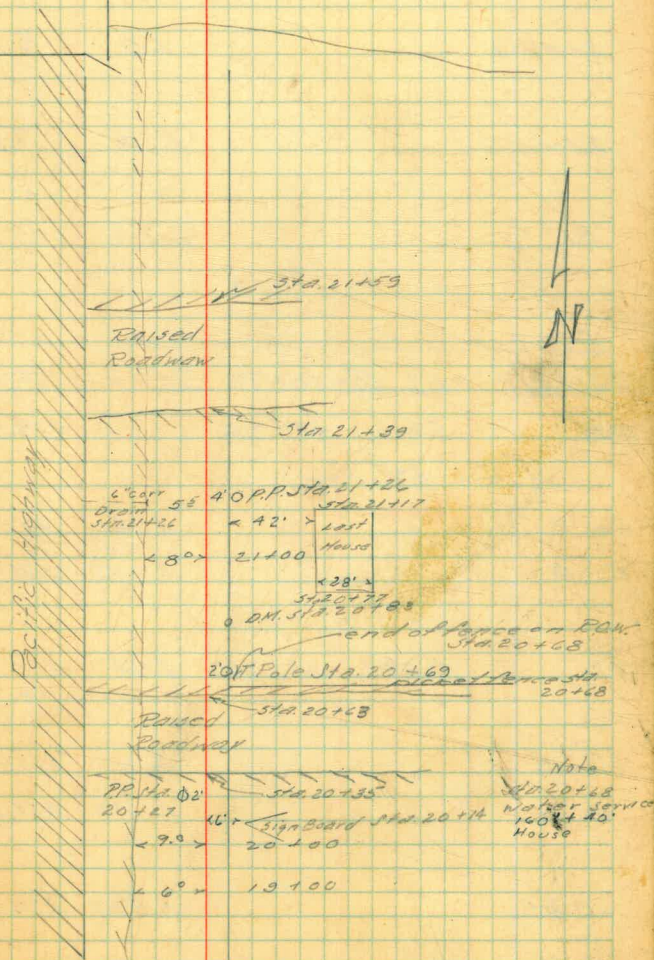 Sta. 21+59
Raised
Roadway
Sta 21+39
Pacific Highway
N
6" Corr
Drain
Sta. 21+26
5⁵
4' P.P. Sta. 21+26
Sta. 21+17
42'
Last
House
8⁰
21+00
28'
Sta. 20+77
D.M. Sta. 20+83
end of fence on R.O.W.
Sta. 20+68
2' T Pole Sta. 20+69
picket fence Sta.
20+68
Sta. 20+63
Raised
Roadway
Sta. 20+35
P.P. Sta. 2'
20+27
6'
Sign Board Sta. 20+14
9.⁰
20+00
6⁰
19+00
Note
Sta. 20+68
Water service
160' + 40'
House